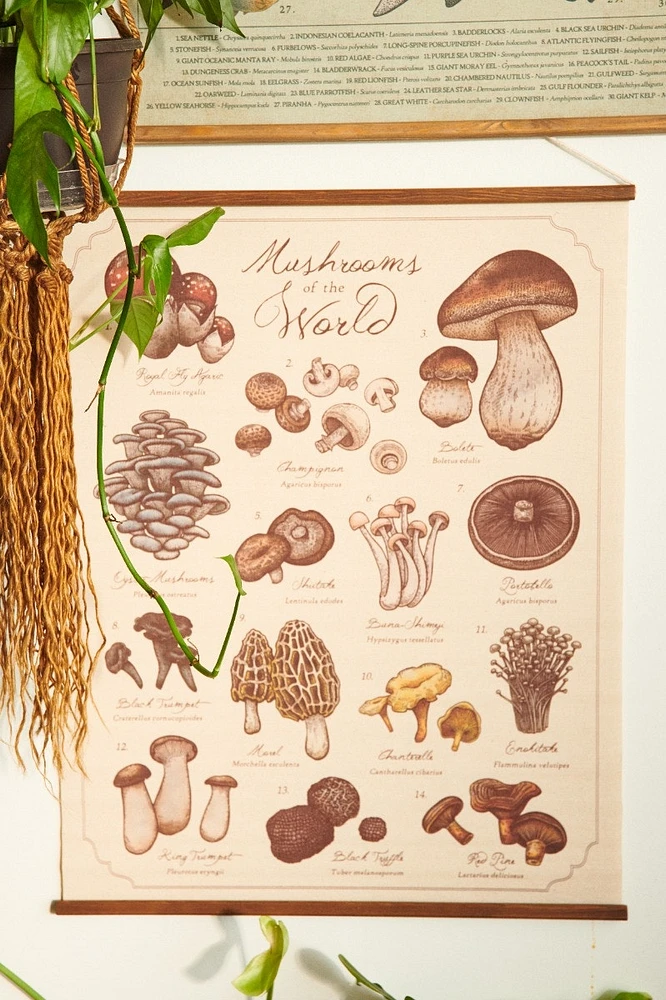 27.
1. SEA NETTLE - Chrysaora quinquecirrha 2. INDONESIAN COELACANTH - Latimeria menadoensis 3. BADDERLOCKS - Alaria esculenta 4. BLACK SEA URCHIN - Diadema
5. STONEFISH - Synanceia verrucosa 6. FURBELOWS - Saccorhiza polyschides 7. LONG-SPINE PORCUPINEFISH - Diodon holocanthus 8. ATLANTIC FLYINGFISH - Cheilopogon
9. GIANT OCEANIC MANTA RAY - Mobula birostris 10. RED ALGAE - Chondrus crispus 11. PURPLE SEA URCHIN - 12. SAILFISH -
13. DUNGENESS CRAB - Metacarcinus magister 14. BLADDERWRACK - Fucus vesiculosus 15. GIANT MORAY EEL - Gymnothorax javanicus 16. PEACOCK'S TAIL - Padina
17. OCEAN SUNFISH - Mola mola 18. EELGRASS - Zostera marina 19. RED LIONFISH - Pterois volitans 20. CHAMBERED NAUTILUS - Nautilus pompilius 21. GULFWEED -
22. OARWEED - Laminaria digitata 23. BLUE PARROTFISH - Scarus coeruleus 24. LEATHER SEA STAR - Dermasterias imbricata 25. GULF FLOUNDER - Paralichthys
26. YELLOW SEAHORSE - Hippocampus kuda 27. PIRANHA - Pygocentrus nattereri 28. GREAT WHITE - Carcharodon carcharias 29. CLOWNFISH - Amphiprion ocellaris 30. GIANT KELP -
Mushrooms
of the
World
Royal Fly Agaric
Amanita regalis
2.
Champignon
Agaricus bisporus
3.
Bolete
Boletus edulis
Oyster Mushrooms
Pleurotus ostreatus
5.
Shiitake
Lentinula edodes
6.
Buna-Shimeji
Hypsizygus tessellatus
7.
Portobello
Agaricus bisporus
8.
Black Trumpet
Craterellus cornucopioides
9.
Morel
Morchella esculenta
10.
Chanterelle
Cantharellus cibarius
11.
Enokitake
Flammulina velutipes
12.
King Trumpet
Pleurotus eryngii
13.
Black Truffle
Tuber melanosporum
14.
Red Pine
Lactarius deliciosus